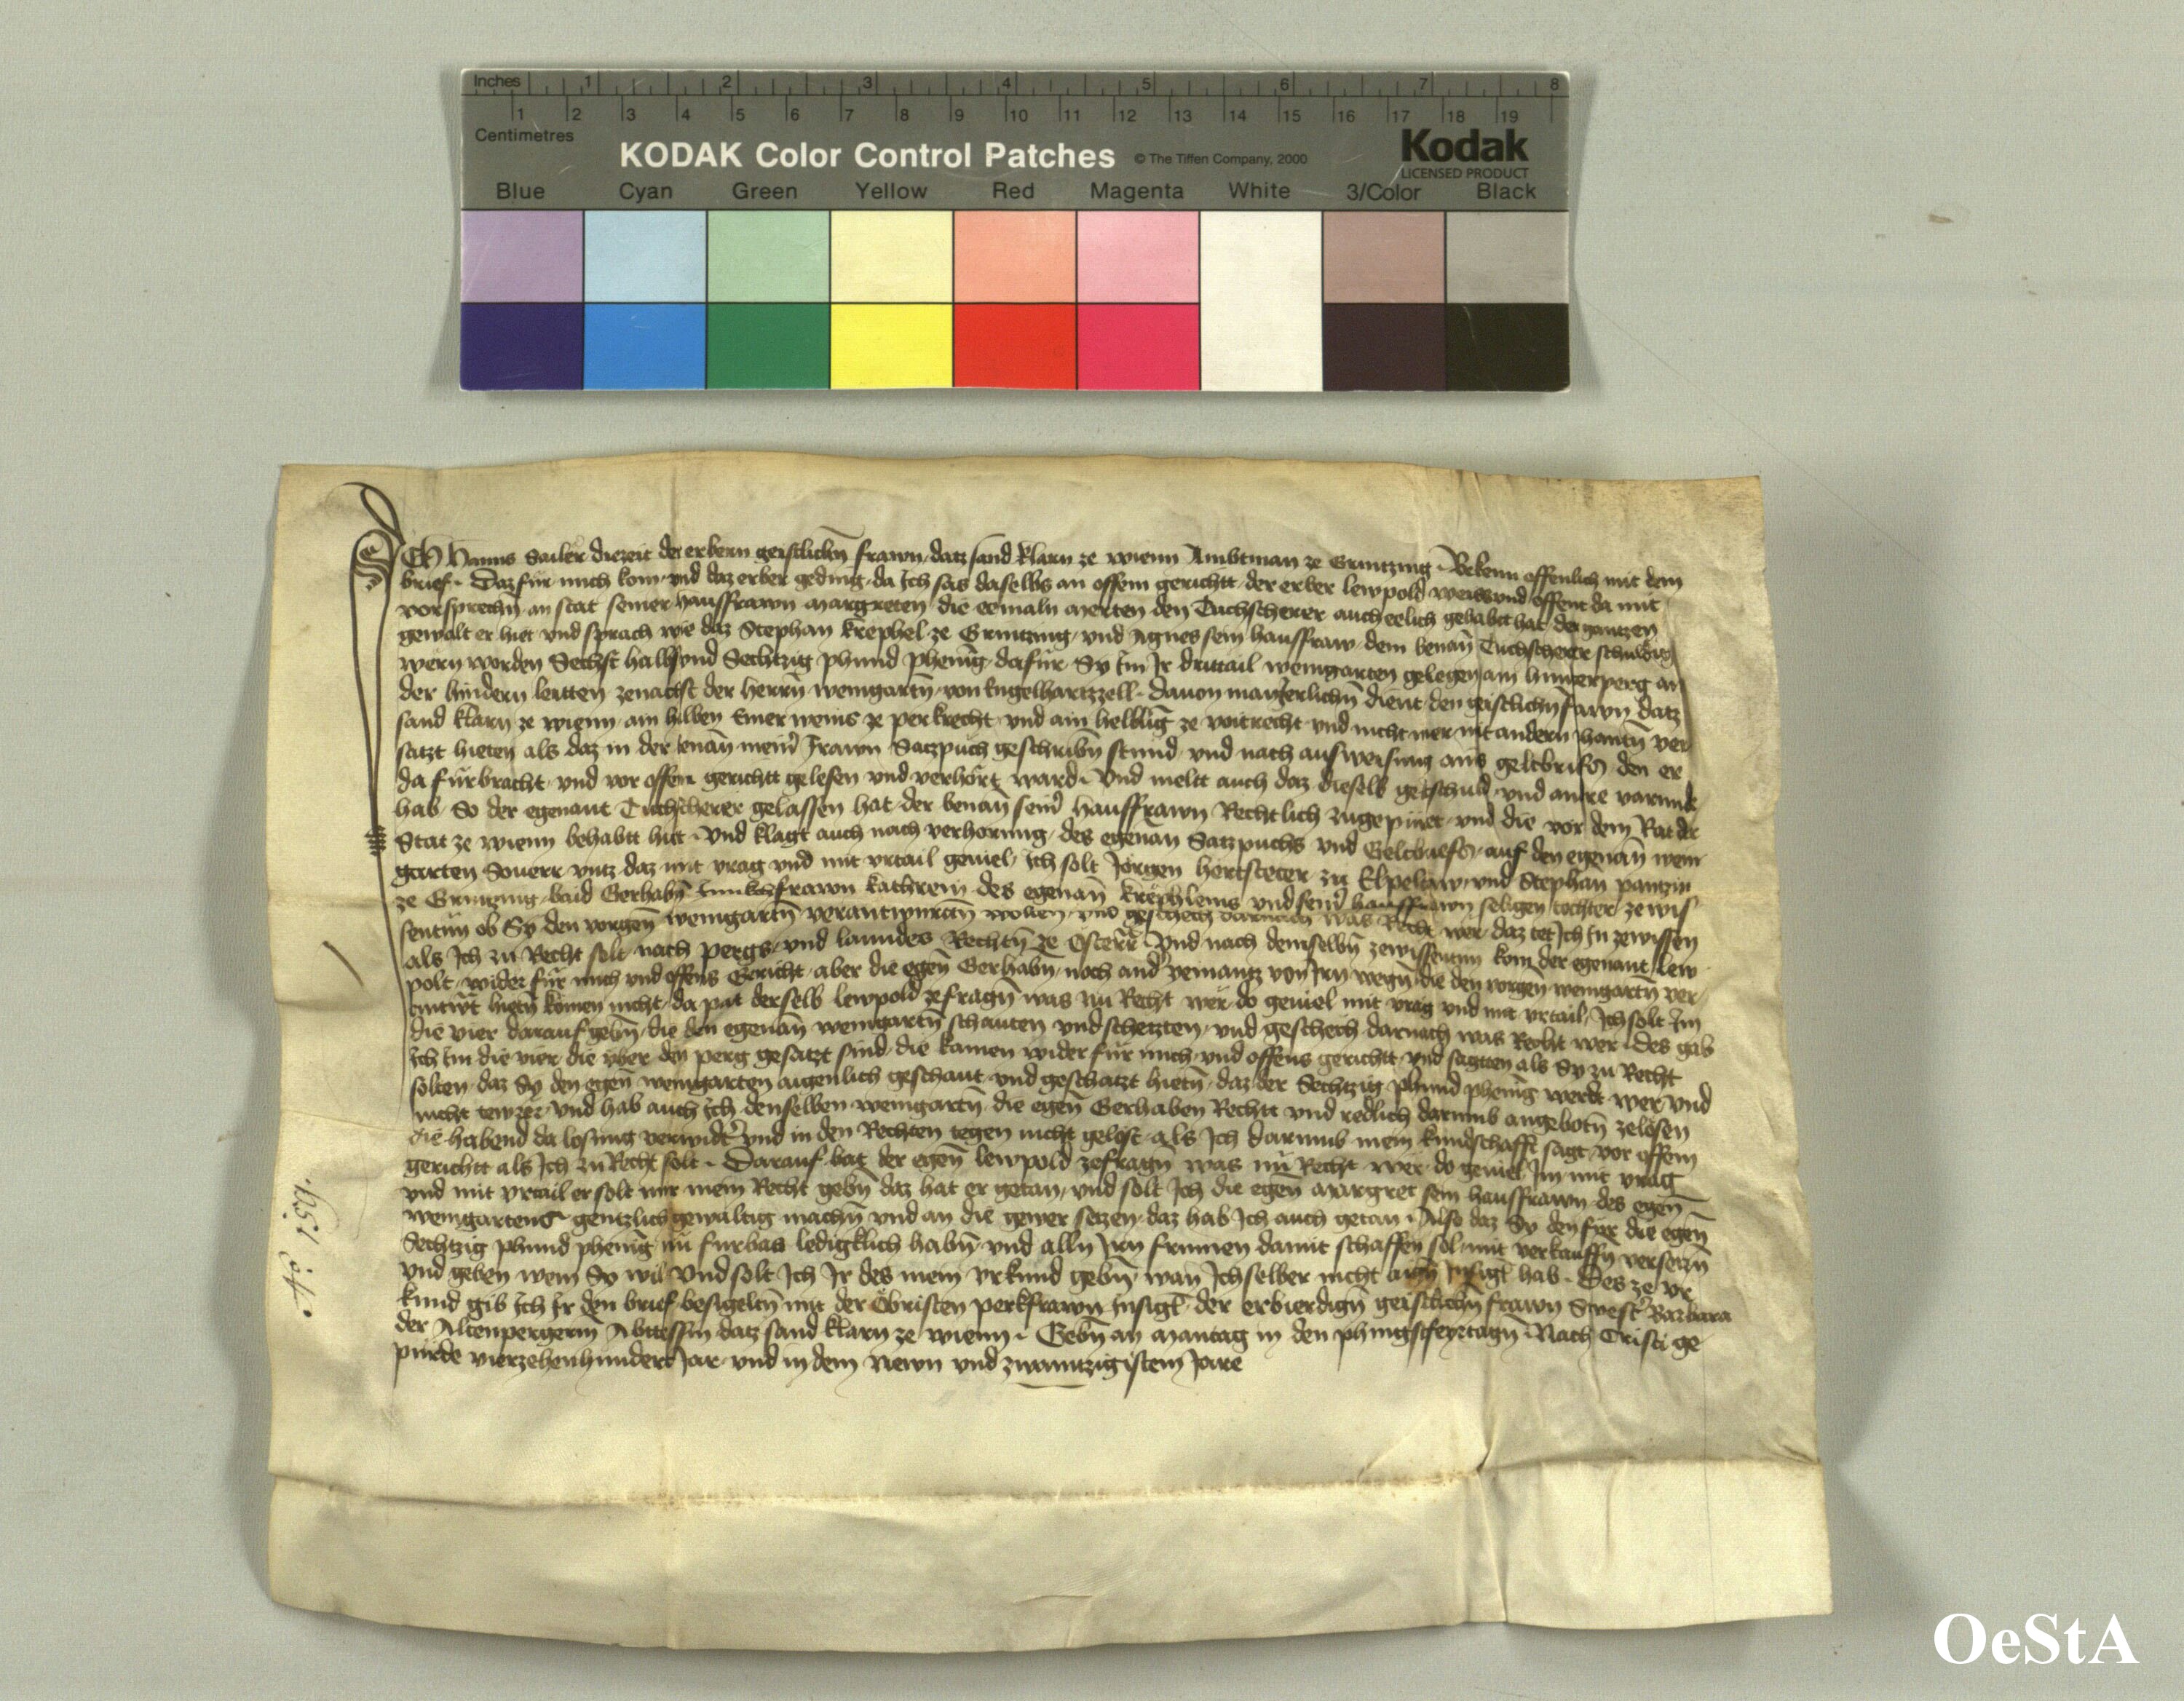 Inches 1 2 3 4 5 6 7 8
1 2 3 4 5 6 7 8 9 10 11 12 13 14 15 16 17 18 19
Centimetres
KODAK Color Control Patches © The Tiffen Company, 2000 Kodak
LICENSED PRODUCT
Blue Cyan Green Yellow Red Magenta White 3/Color Black
Ich Hanns Sailer diezeit der erbern geistlichn̄ frawn datz sand Klarn ze wienn Ambtman ze Grintzing Bekenn offenlich mit dem
brief Daz für mich kom vnd daz erber geding da Ich sas daselbs an offem gerichtt der erber lewpold weiss vnd offent da mit
vorsprechn̄ an stat seiner hausfrawn Margreten die eemaln Merten den Tuchscherer auch eelich gehabtt hat der gantzen
gewalt er hiet vnd sprach wie daz Stephan Krephel ze Grintzing vnd Agnes sein hausfraw dem benan̄ Tuchscherer schuldig
wern worden Sechst halb vnd Sechtzig phund phenīg dafür Sy Im Ir drittail weingarten gelegen am hunterperg an
der hindern leitten zenachst der herrn̄ weingartn̄ von Engelhartzzell dauon man Jerlichn̄ dient den geistlichn̄ frawn datz
sand Klarn ze wienn ain halben Emer weins ze perkrecht vnd ain helblīg ze voitrecht vnd nicht mer mit andern hantn̄ ver
satzt hieten als daz in der benan̄ meinr̄ frawn Satzpuch geschribn̄ stund vnd nach ausweisung ains geltbriefs den er
da fürbracht vnd vor offem gerichtt gelesen vnd verhört ward Vnd meltt auch daz dieselb geltschuld vnd andre varunde
hab So der egenant Tuchscherer gelassen hat der benan̄ seinr̄ hausfrawn Rechtlich zugepüret vnd die vor dem Rat der
Stat ze wienn behabtt hiet Vnd klagt auch nach verhorung des egenan Satzpuchs vnd Geltbriefs auf den egenan̄ wein
garten Souerr vntz daz mit vrag vnd mit vrtail geuiel Ich solt Jorgen hertsteter zu Elpeltaw vnd Stephan pantzin
ze Grintzing baid Gerhabn̄ Junkchfrawn Kathrein des egenan̄ Krephleins vnd seinr̄ hausfrawn seligen tochter ze wis
sentun ob Sy den vorgen̄ weingartn̄ verantwurttn̄ wolten vnd geschech darnach was Recht wer daz tet Ich In zewissen
als Ich zu Recht solt nach pergs vnd lanndes Rechtn̄ ze Österr̄ Vnd nach demselbn̄ zewissentun kom der egenant Lew
polt wider für mich vnd offens Gericht aber die egen̄ Gerhabn̄ noch andr̄ yemantz von Irn wegn̄ die den vorgen̄ weingartn̄ ver
antwurt hietn̄ komen nicht da pat derselb lewpold zefragn̄ was nu Recht wer do geuiel mit vrag vnd mit vrtail Ich solt Im
die vier darauf gebn̄ die den egenan̄ weingartn̄ schauten vnd schetzten vnd geschech darnach was Recht wer Des gab
Ich Im die vier die vber den perg gesatzt sind die kamen wider für mich vnd offens gerichtt vnd sagtten als Sy zu Recht
solten daz Sy den egen̄ weingarten aigenlich geschaut vnd geschatzt hietn̄ daz der Sechtzig phund phenīg werdt wer vnd
nicht tewrer vnd hab auch Ich denselben weingartn̄ die egen̄ Gerhaben Rechtt vnd redlich darumb angebotn̄ zelösen
die habend da losung verwidr̄t vnd in den Rechten tegen nicht gelöst als Ich darumb mein kundschafft sagt vor offem
gerichtt als Ich zu Recht solt Darauf bat der egen̄ lewpold zefragn̄ was nu Recht wer do geuiel Im mit vrag
vnd mit vrtail er solt mir mein Recht gebn̄ daz hat er getan vnd solt Ich die egen̄ Margret sein hausfrawn des egen̄
weingartens gentzlich gewaltig machn̄ vnd an die gewer setzen daz hab Ich auch getan Also daz Sy den für die egen̄
Sechtzig phund phenīg nu furbas ledigklich habn̄ vnd alln Irn frumen damit schaffen sol mit verkauffn̄ versetzn̄
vnd geben wem Sy wil Vnd solt Ich Ir des mein vrkund gebn̄ wan Ich selber nicht aign̄ Insigl hab Des ze vr
kund gib Ich Ir den brief besigeltn̄ mit der Öbristen perkfrawn Insigl der erbierdign̄ geistlichn̄ frawn Swestr̄ Barbara
der Altenpergerin̄ Abttessin datz sand Klarn ze wienn Gebn̄ an Mantag in den phingstfeyrtagn̄ Nach Cristi ge
purde vierzehenhundert Jar vnd in dem Newn vnd zwaintzigistem Jare
OeStA